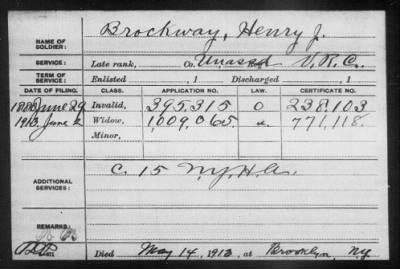 NAME OF SOLDIER: Brockway, Henry J.
SERVICE: Late rank, Co. Unassd V.R.C.
TERM OF SERVICE: Enlisted , 1 Discharged , 1
DATE OF FILING. CLASS. APPLICATION NO. LAW. CERTIFICATE NO.
1880 June 29 Invalid, 395,315 O 238,103
1913, June 2 Widow, 1,009,065. 771,118.
Minor,
ADDITIONAL SERVICES: C. 15 N.Y.H.A.
REMARKS:
Died May 14, 1913, at Brooklyn, N.Y.